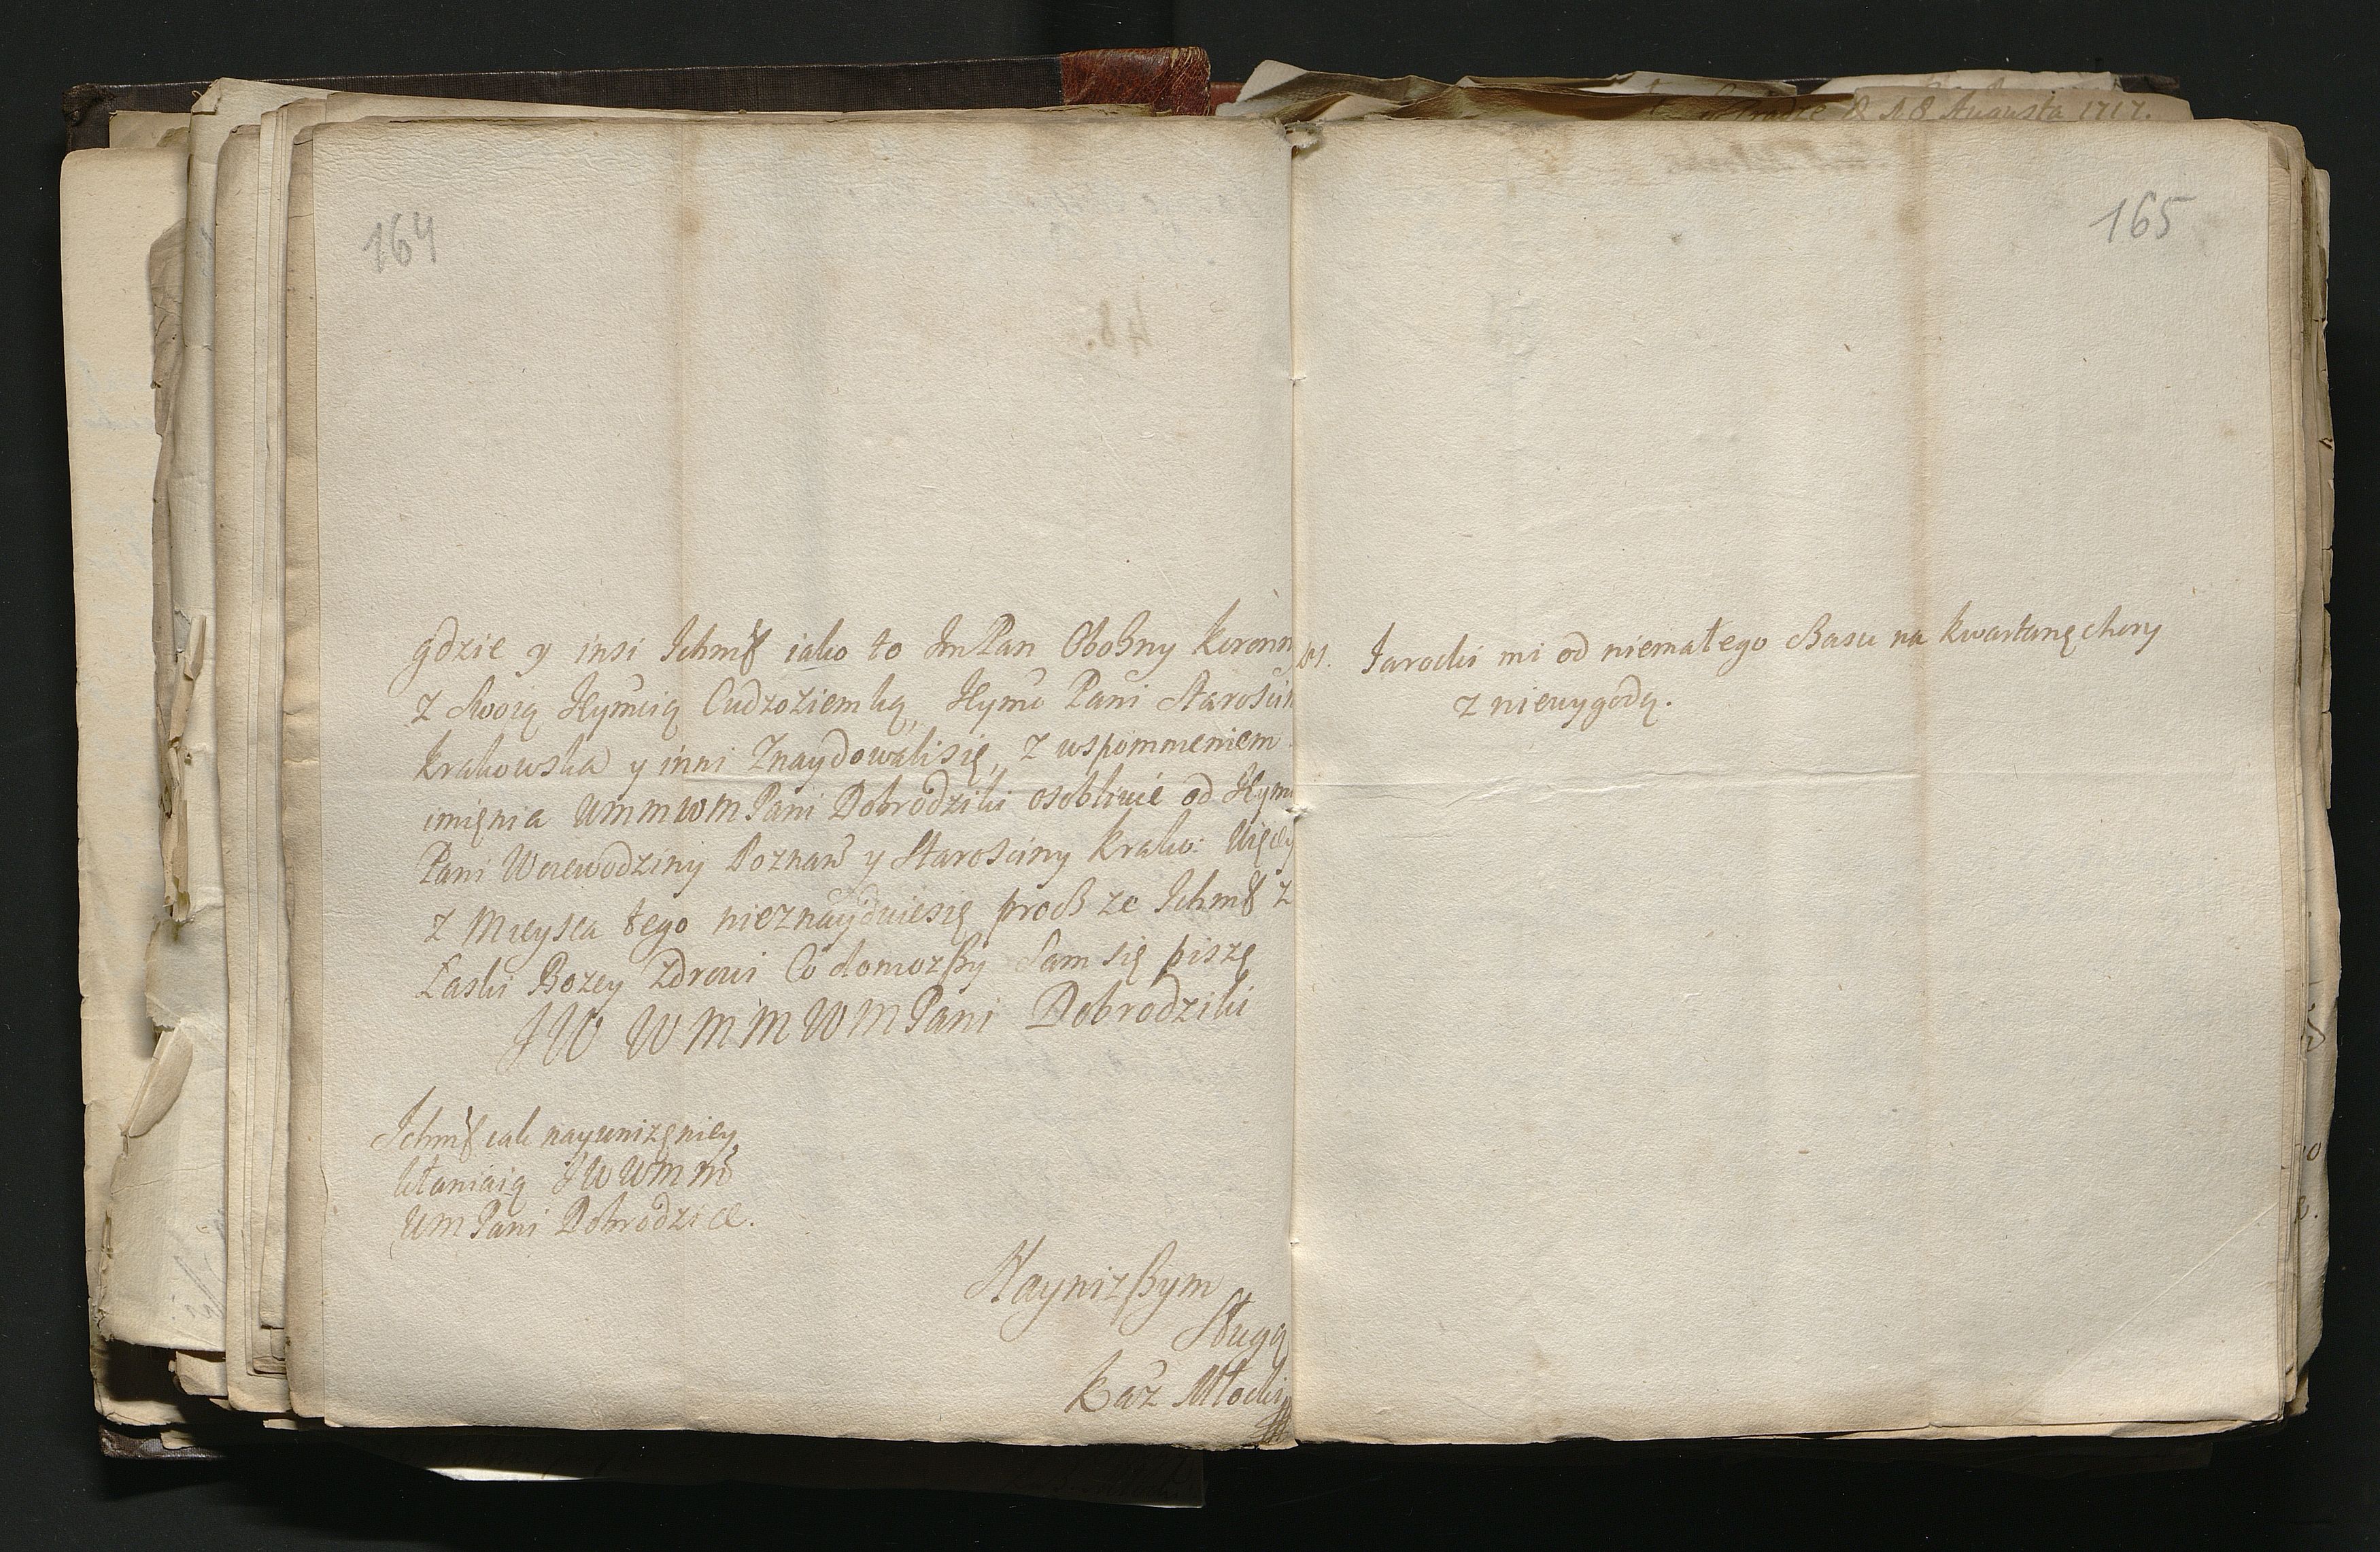 164
gdzie y insi Ichmść iako to ImPan Oboßny koronn
z Swoią Jeymcią Cudzoziemką, Jeymć Pani Starościn
krakowska y inni Znaydowali się, z wspommeniem
imięnia WMMWMPani Dobrodziki osobliwie od Jeymc
Pani Woiewodziny Poznań y Starościny krako: Więcey
z Mieysca tego nieznayduiesię procß ze Ichmść z
Łaski Bozey Zdrowi Co doniozßy Sam się piszę
JW WMMWMPani Dobrodziki
Ichmść iak nayunizęniey
kłaniaią JWWMM
WMPani Dobrodzice.
Naynizßym
Sługą
Kaz Młocki
165
Jarocki mi od niemałego Czasu na kwartanę chory
z niewygodą.
Augusta 1717.